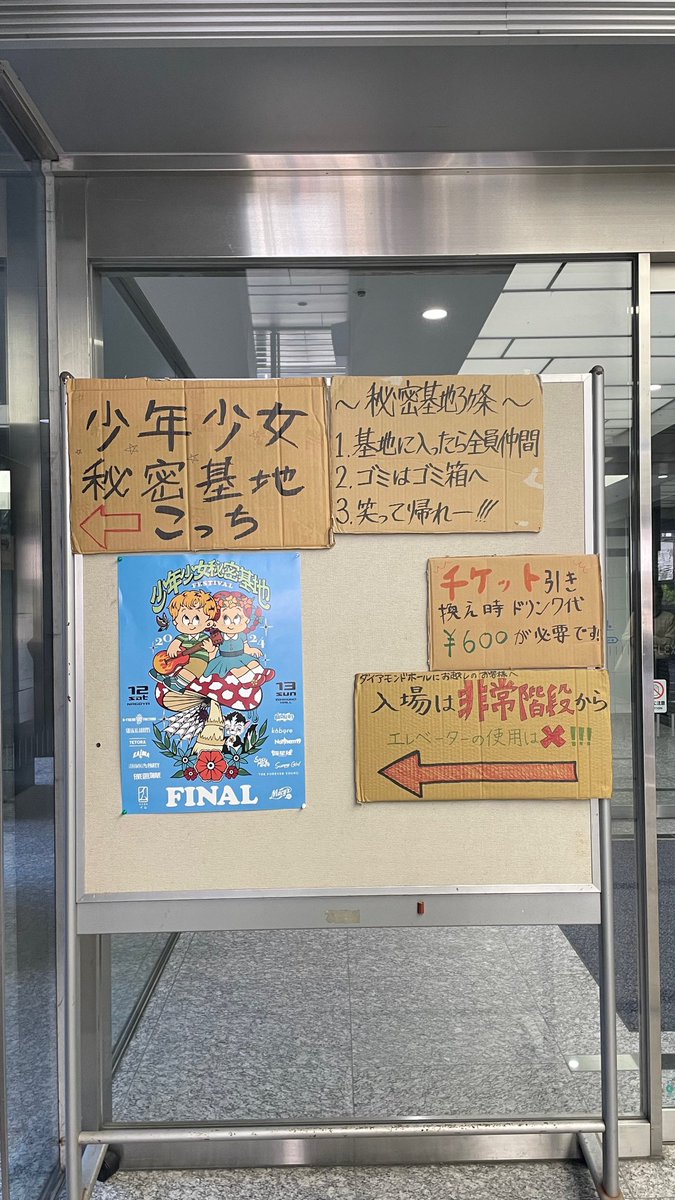 少年少女
秘密基地
こっち
～秘密基地3ヶ条～
1. 基地に入ったら全員仲間
2. ゴミはゴミ箱へ
3. 笑って帰れー!!!
少年少女秘密基地
FESTIVAL
2024
12
sat
NAGOYA
13
sun
FINAL
チケット引き
換え時 ドリンク代
¥600が必要です!
ダイアモンドホールにお越しのお客様へ
入場は非常階段から
エレベーターの使用は✖!!!